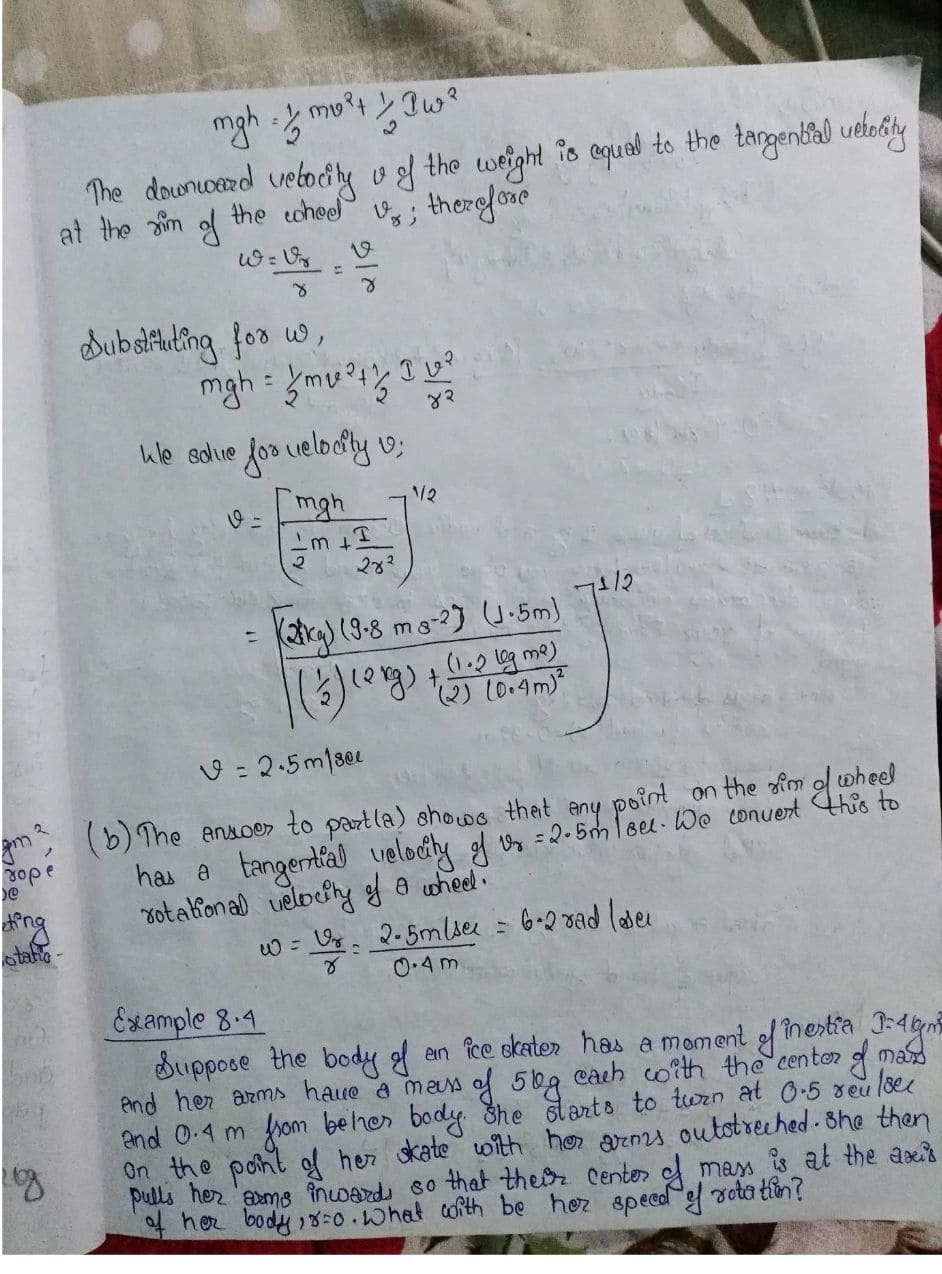 mgh = 1/2 mv² + 1/2 Iω²
The downward velocity v of the weight is equal to the tangential velocity
at the rim of the wheel vr; therefore
ω = vr/r = v/r
Substituting for ω,
mgh = 1/2 mv² + 1/2 I v²/r²
We solve for velocity v;
v = [mgh / (1/2 m + I/2r²)]^1/2
= [(2kg) (9.8 m s-2) (1.5m) / ((1/2) (2 kg) + (1.2 kg m²)/(2) (0.4m)²)]^1/2
v = 2.5m/sec
(b) The answer to part(a) shows that any point on the rim of wheel
has a tangential velocity of vr = 2.5m/sec. We convert this to
rotational velocity of a wheel.
ω = vr/r = 2.5m/sec / 0.4 m = 6.2 rad/sec
Example 8.4
Suppose the body of an ice skater has a moment of inertia I=4kgm²
and her arms have a mass of 5kg each with the center of mass
and 0.4 m from her body. She starts to turn at 0.5 rev/sec
on the point of her skate with her arms outstreched. She then
pulls her arms inwards so that their center of mass is at the axis
of her body, r=0. What with be her speed of rotation?
gm²,
rope
ting
otatio-